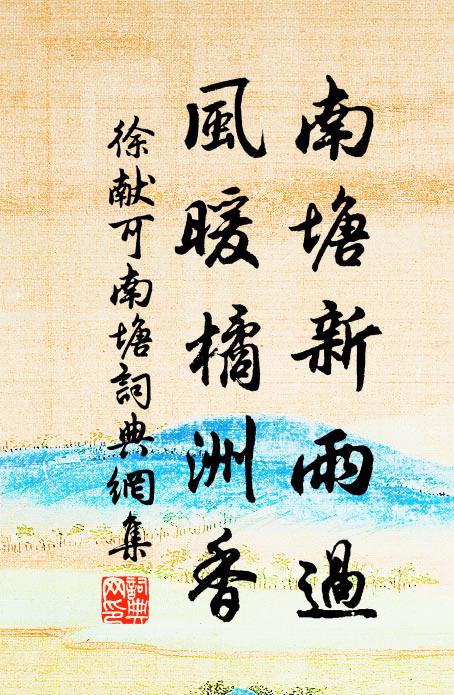 南塘新雨過
風暖橘洲香
徐献可南塘詞典網集
詞典網印